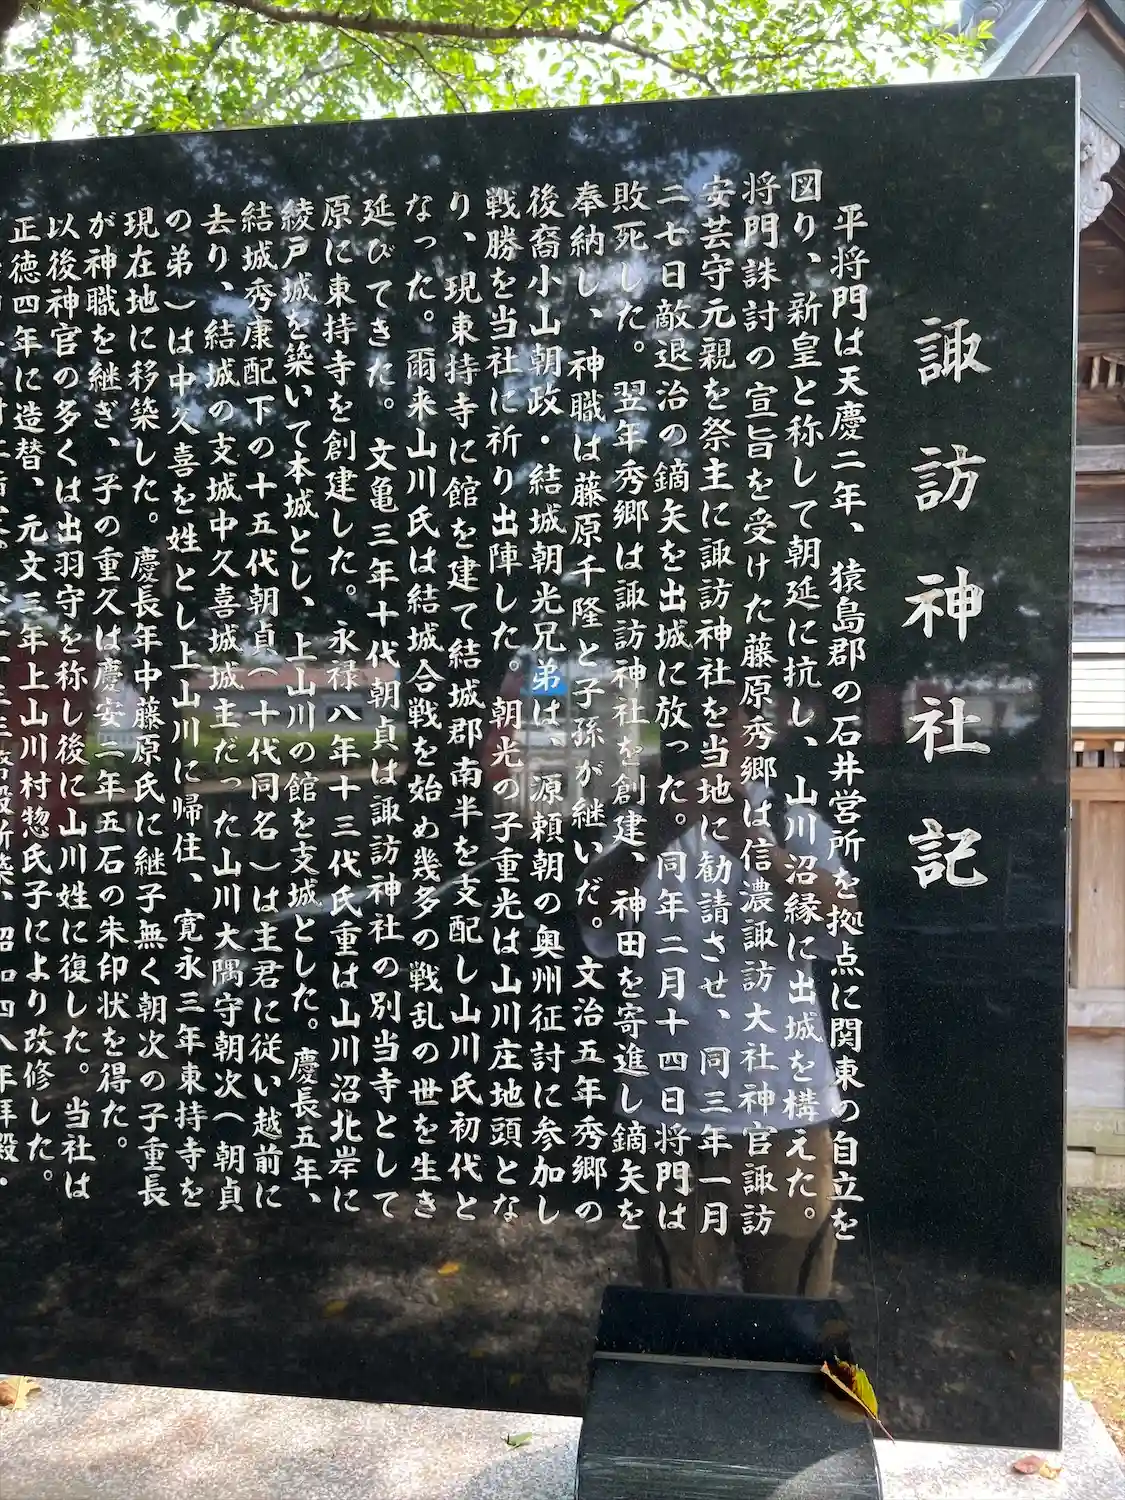 諏訪神社記
平将門は天慶二年、猿島郡の石井営所を拠点に関東の自立を
図り、新皇と称して朝廷に抗し、山川沼縁に出城を構えた。
将門誅討の宣旨を受けた藤原秀郷は信濃諏訪大社神官諏訪
安芸守元親を祭主に諏訪神社を当地に勧請させ、同三年一月
二七日敵退治の鏑矢を出城に放った。同年二月十四日将門は
敗死した。翌年秀郷は諏訪神社を創建、神田を寄進し鏑矢を
奉納し、神職は藤原千隆と子孫が継いだ。文治五年秀郷の
後裔小山朝政・結城朝光兄弟は、源頼朝の奥州征討に参加し
戦勝を当社に祈り出陣した。朝光の子重光は山川庄地頭とな
り、現東持寺に館を建て結城郡南半を支配し山川氏初代と
なった。爾来山川氏は結城合戦を始め幾多の戦乱の世を生き
延びてきた。文亀三年十代朝貞は諏訪神社の別当寺として
原に東持寺を創建した。永禄八年十三代氏重は山川沼北岸に
綾戸城を築いて本城とし、上山川の館を支城とした。慶長五年、
結城秀康配下の十五代朝貞（十代同名）は主君に従い越前に
去り、結城の支城中久喜城城主だった山川大隅守朝次（朝貞
の弟）は中久喜を姓とし上山川に帰住、寛永三年東持寺を
現在地に移築した。慶長年中藤原氏に継子無く朝次の子重長
が神職を継ぎ、子の重久は慶安二年五石の朱印状を得た。
以後神官の多くは出羽守を称し後に山川姓に復した。当社は
正徳四年に造替、元文三年上山川村惣氏子により改修した。
昭和四八年拝殿・